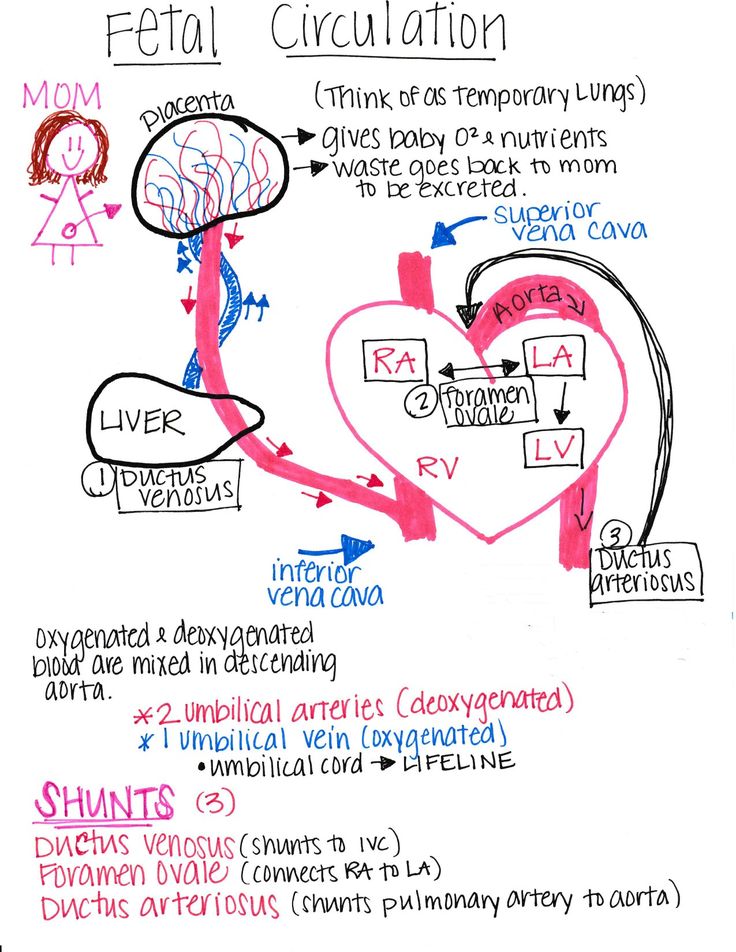 Fetal Circulation
MOM
Placenta
(Think of as temporary Lungs)
→ gives baby O² & nutrients
→ waste goes back to mom
to be excreted.
superior
vena cava
Aorta
RA
LA
2
foramen
ovale
LIVER
RV
LV
1
Ductus
venosus
3
Ductus
arteriosus
inferior
vena cava
oxygenated & deoxygenated
blood are mixed in descending
aorta.
*2 umbilical arteries (deoxygenated)
*1 umbilical vein (oxygenated)
• umbilical cord → LIFELINE
SHUNTS (3)
Ductus venosus (shunts to IVC)
Foramen ovale (connects RA to LA)
Ductus arteriosus (shunts pulmonary artery to aorta)